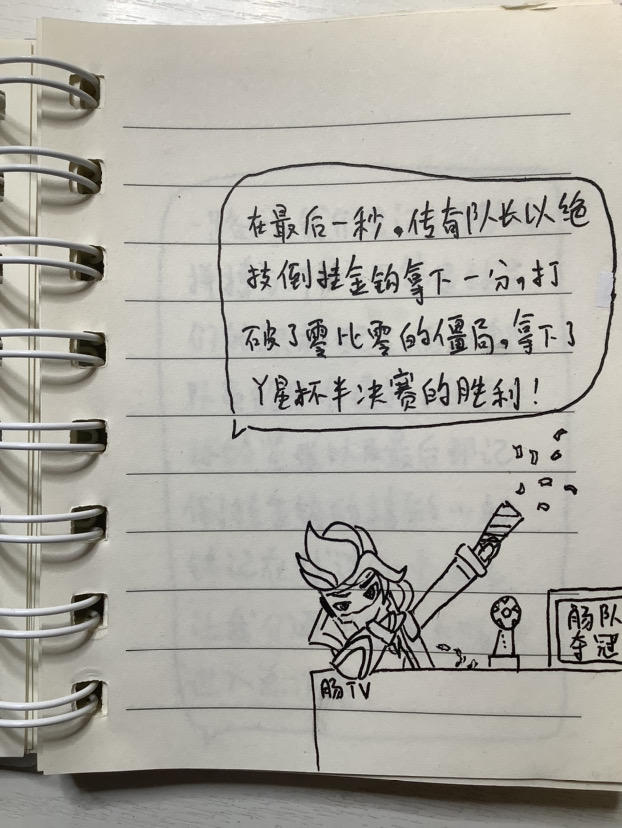 在最后一秒。传奇队长以绝
技倒挂金钩拿下一分,打
破了零比零的僵局。拿下了
丫星杯半决赛的胜利!
肠队
夺冠
肠TV